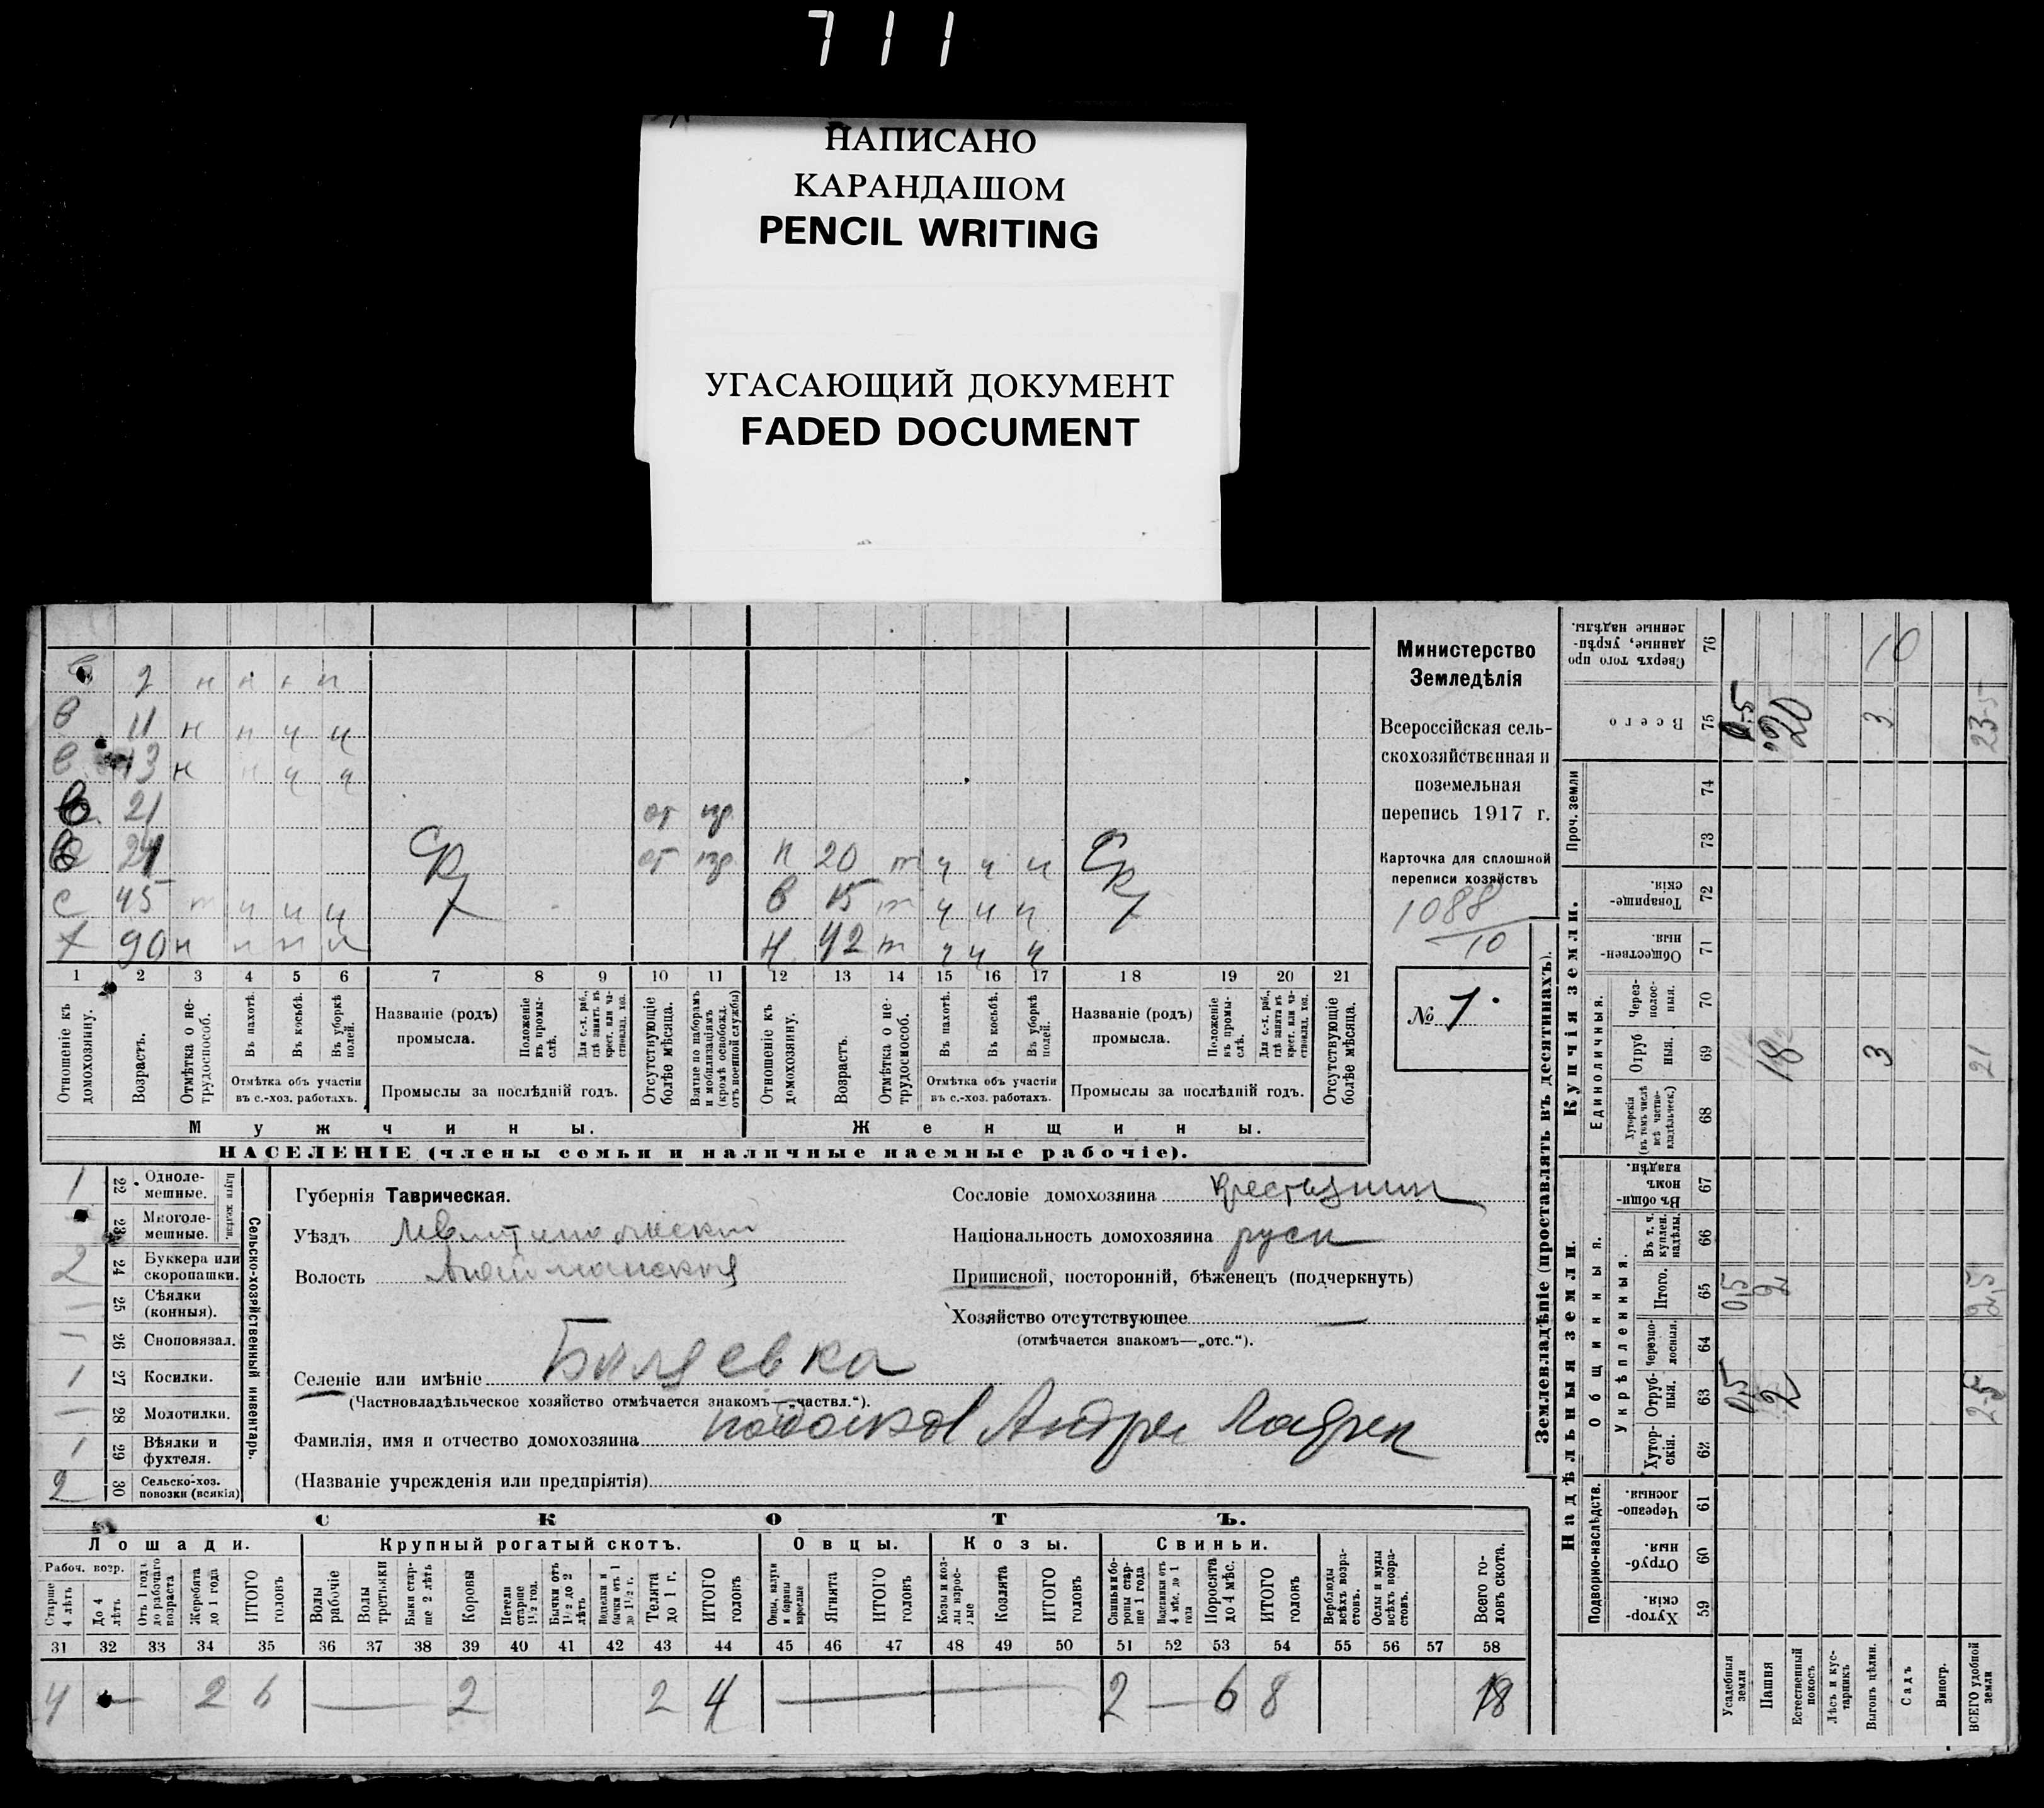 711
НАПИСАНО
КАРАНДАШОМ
PENCIL WRITING
УГАСАЮЩИЙ ДОКУМЕНТ
FADED DOCUMENT
в 11 н н ч ч
в 13 н н ч ч
в 21 от пр.
в 24 от пр. п 20 т ч ч ч
с 45 т ч ч ч в 15 т ч ч ч
х 90 н н н н н 42 т ч ч ч
1 2 3 4 5 6 7 8 9 10 11 12 13 14 15 16 17 18 19 20 21
Отношеніе къ домохозяину.
Возрастъ.
Отмѣтка о нетрудоспособ.
Въ пахотѣ.
Въ косьбѣ.
Въ уборкѣ полей.
Отмѣтка объ участіи въ с.-хоз. работахъ.
Названіе (родъ) промысла.
Положеніе въ промыслѣ.
Для с.-х. раб., гдѣ занятъ въ крест. или частновлад. хоз.
Промыслы за послѣдній годъ.
Отсутствующіе болѣе мѣсяца.
Взятые по наборамъ и мобилизаціямъ (кромѣ освобожд. отъ военной службы)
Отношеніе къ домохозяину.
Возрастъ.
Отмѣтка о нетрудоспособ.
Въ пахотѣ.
Въ косьбѣ.
Въ уборкѣ полей.
Отмѣтка объ участіи въ с.-хоз. работахъ.
Названіе (родъ) промысла.
Положеніе въ промыслѣ.
Для с.-х. раб., гдѣ занята въ крест. или частновлад. хоз.
Промыслы за послѣдній годъ.
Отсутствующіе болѣе мѣсяца.
Мужчины. Женщины.
НАСЕЛЕНІЕ (члены семьи и наличные наемные рабочіе).
Министерство
Земледѣлія
Всероссійская сель-
скохозяйственная и
поземельная
перепись 1917 г.
Карточка для сплошной
переписи хозяйствъ
1088/10
№ 1.
1 22 Однолемешные.
23 Многолемешные.
2 24 Буккера или скоропашки.
— 25 Сѣялки (конныя).
— 26 Сноповязал.
1 27 Косилки.
— 28 Молотилки.
1 29 Вѣялки и фухтеля.
2 30 Сельско-хоз. повозки (всякія)
Сельско-хозяйственный инвентарь.
Губернія Таврическая.
Уѣздъ
Волость
Селеніе или имѣніе
(Частновладѣльческое хозяйство отмѣчается знакомъ—„частвл.“).
Фамилія, имя и отчество домохозяина Андре
(Названіе учрежденія или предпріятія)
Сословіе домохозяина крестянин
Національность домохозяина руск
Приписной, посторонній, бѣженецъ (подчеркнуть)
Хозяйство отсутствующее —
(отмѣчается знакомъ—„отс.“).
СКОТЪ.
Лошади. Крупный рогатый скотъ. Овцы. Козы. Свиньи.
Рабоч. возр.
Старше 4 лѣтъ
До 4 лѣтъ
Отъ 1 года до рабочаго возраста
Жеребята до 1 года
ИТОГО головъ
Волы рабочіе
Волы третьяки
Быки старше 2 лѣтъ
Коровы
Нетели старше 1½ год.
Бычки отъ 1½ до 2 лѣтъ
Телята до 1 г.
ИТОГО головъ
Ягнята
ИТОГО головъ
Козы и козлы взрослые
Козлята
ИТОГО головъ
Свиньи и боровы старше 1 года
Поросята до 4 мѣс.
ИТОГО головъ
Верблюды всѣхъ возрастовъ.
Ослы и мулы всѣхъ возрастовъ.
Всего головъ скота.
31 32 33 34 35 36 37 38 39 40 41 42 43 44 45 46 47 48 49 50 51 52 53 54 55 56 57 58
4 — 2 6 — 2 2 4 — 2 — 6 8 18
Землевладѣніе (проставлять въ десятинахъ).
Надѣльныя земли. Купчія земли.
Подворно-наслѣдств. Общинныя. Единоличныя. Проч. земли
Укрѣпленныя.
Хуторскія. 59
Отрубныя. 60
Черезполосныя. 61
Хуторскія. 62
Отрубныя. 63
Черезполосныя. 64
Итого. 65
Въ т. ч. куплен. надѣлы. 66
Въ общинномъ владѣн. 67
Хуторскія (въ томъ числѣ всѣ частновладѣльческ.) 68
Отрубныя. 69
Черезполосныя. 70
Общественныя. 71
Товарищескія. 72
73
74
Всего 75
Сверхъ того проданные, укрѣпленные надѣлы. 76
Усадебныя земли 0,5 0,5 0,5
Пашня 2 2 18 20
Естественный покосъ
Лѣсъ и кустарникъ
Выгонъ цѣлин. 3 3 10
Садъ
Виногр.
ВСЕГО удобной земли 2,5 2,5 21 23,5